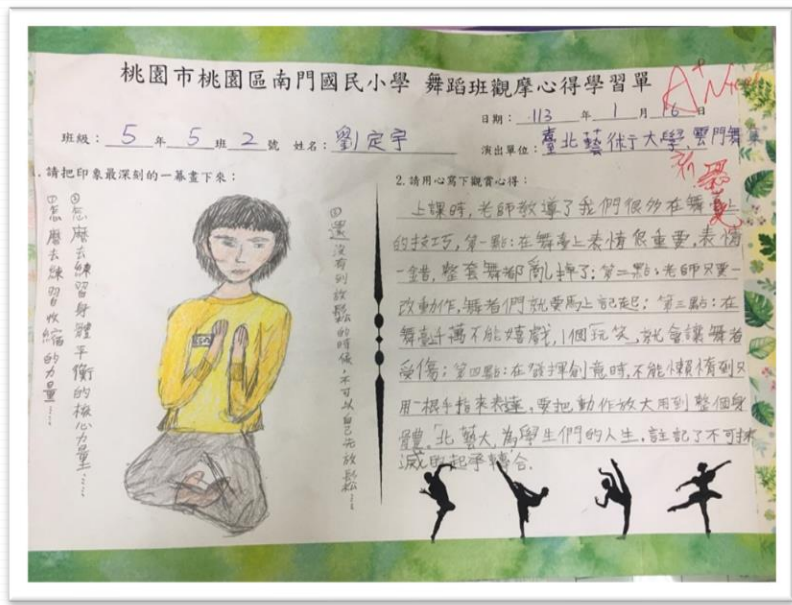 桃園市桃園區南門國民小學 舞蹈班觀摩心得學習單
A+
日期：113 年 1 月 16 日
班級：5 年 5 班 2 號 姓名：劉定宇
演出單位：臺北藝術大學,雲門舞集
1.請把印象最深刻的一幕畫下來：
①怎麼去練習收縮的力量……
②怎麼去練習身體平衡的核心力量……
③還沒有到放鬆的時候，不可以自己先放鬆……
2.請用心寫下觀賞心得：
上課時,老師教導了我們很多在舞臺上
的技巧,第一點：在舞臺上表情很重要,表情
一錯,整套舞都亂掉了；第二點：老師只要一
改動作,舞者們就要馬上記起；第三點：在
舞臺千萬不能嬉戲,1個玩笑,就會讓舞者
受傷；第四點：在發揮創意時,不能懶惰到只
用一根手指來表達,要把動作放大用到整個身
體。「北藝大」為學生們的人生,註記了不可抹
滅的起承轉合。